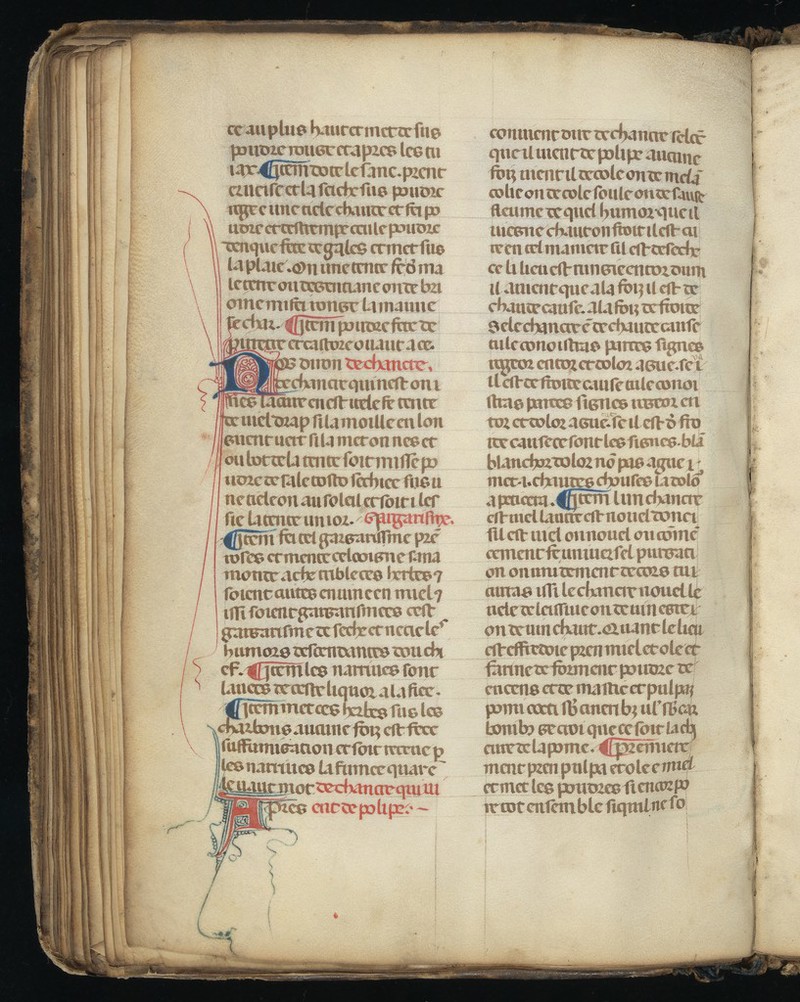 ce au plus haut et met de sus
poudre rouge et apres les cu
¶ Item dote le sanc. prent
et la seiche sus poudre
une tiele chaude et fei po
udre et destrempe ceule poudre
fete de gales et met sus
la plaie. On une tente
le tente ou de gentiane on de
la maune
se char. ¶ Item poudre fete de
et castore ou aut ace.
Nos diron de chancre.
de chancre qui nest on i
nes laaute en est uiele fe tente
de uiel drap si la moille en lon
guent uert si la met on nes et
ou bot de la tente soit misse po
udre de sale tosto sechiee sus u
ne tiele on au soleil et soit i les
sie la tente un ior. Gargarisme.
¶ Item fei tel gargarissme pre
roses et mente celdoigne sana
monde ache tribleces herbes ⁊
soient cuites en uin e en miel ⁊
issi soient gargarismees cest
gargarisme de seche et netie les
humors descendantes dou chi
ef. ¶ Item les narriues sont
lauees de ceste liquor ala fiee.
¶ Item met ces herbes sus les
charbons aucune foiz est fete
suffumigation et soit receue p
les narriues la fumee quar e
le uaut mot de chancre qui ui
Apres ent de polipe
comment dure de chancre selec
que il uient de polipe aucune
foiz uient il de cole on de mela
colie on de cole soule on de sanc
fleume de quel humor que il
uiegne chaut on froit il est cu
re en tel maniere sil est de seche
ce li lieu est runge entor dum
il auient que a la foiz il est de
chaude cause. a la foiz de froide
Se le chancre e de chaude cause
tu le conoistras par ces signes
rogeor entor et dolor ague. se i
il est de froide cause tu le conoi
stras par ces signes uerdor en
tor et dolor ague. se il est d fro
ide cause ce sont les signes. bla
blanchor dolor no pas ague i
met. i. chaudes chouses la dolo
apaiera. ¶ Item lun chancre
est uiel lautre est nouel donc i
sil est uiel ou nouel ou come
cement fe uniuersel purgati
on on uuidement de cors tu i
curras issi le chancre nouel le
uele de lessiue on de uin egre i
on de uin chaut. Quant le lieu
est essuie doie pren miel et ole et
farine de forment poudre de
encens et de mastic et pulpa
pomi cocti sb cineribz ul sb car
bonibz ge croi que ce soit la ch
cure de la pome. ¶ Premiere
ment pren pulpa et ole e miel
et met les poudres si encorpo
re tot ensemble si quil ne so